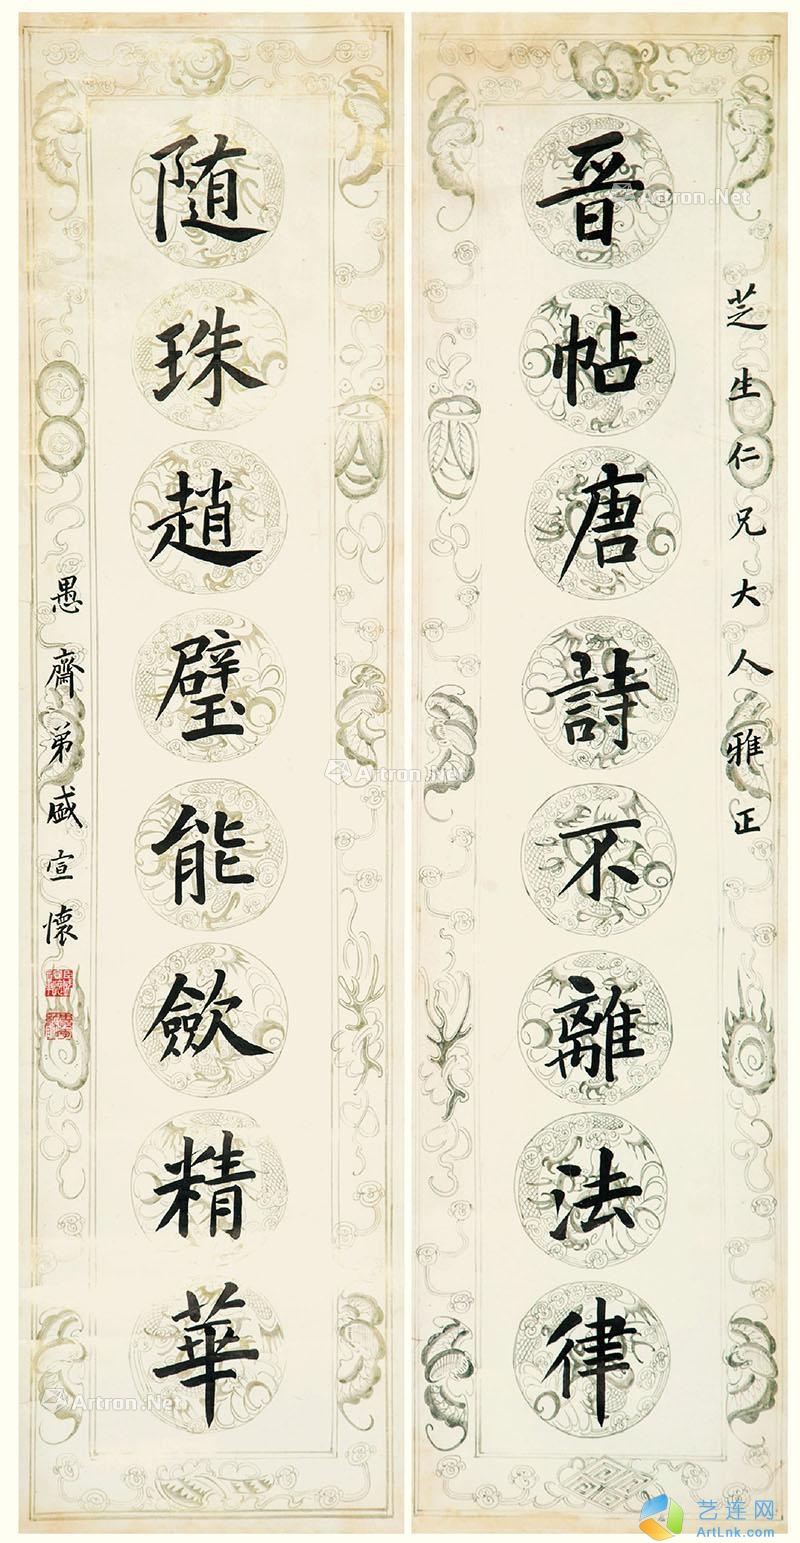 芝生仁兄大人雅正
晋帖唐詩不離法律
随珠趙璧能斂精華
愚齋弟盛宣懷
Artron.Net
Artron.Net
Artron.Net
艺连网
ArtLnk.com